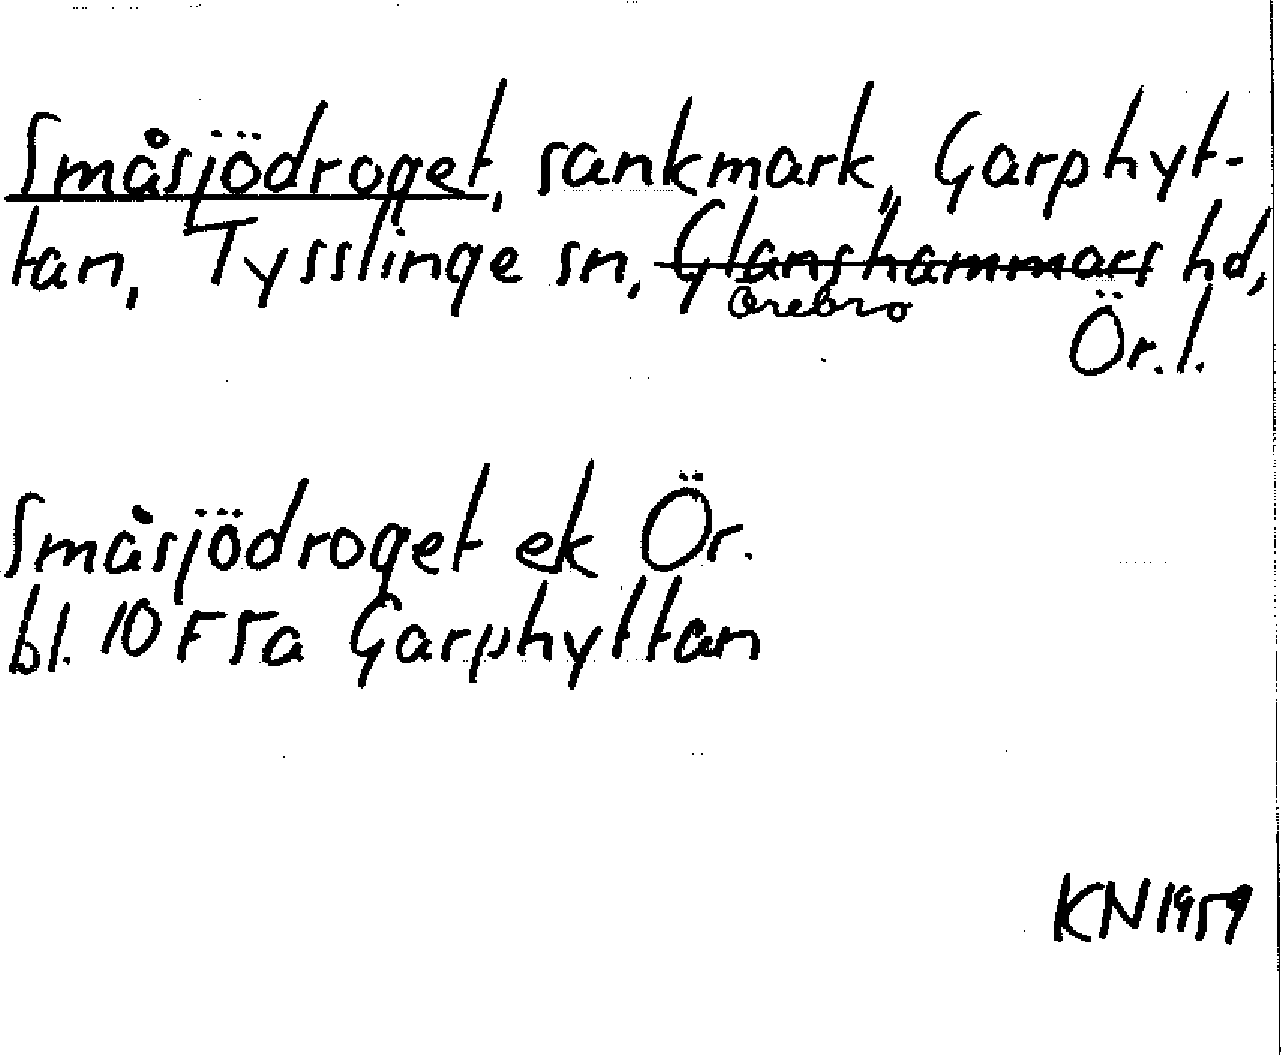 Småsjödroget, sankmark, Garphyt-
tan, Tysslinge sn, Glanshammars hd,
Örebro
Ör. l.
Småsjödroget ek Ör.
bl. 10 F 5a Garphyttan
KN 1959